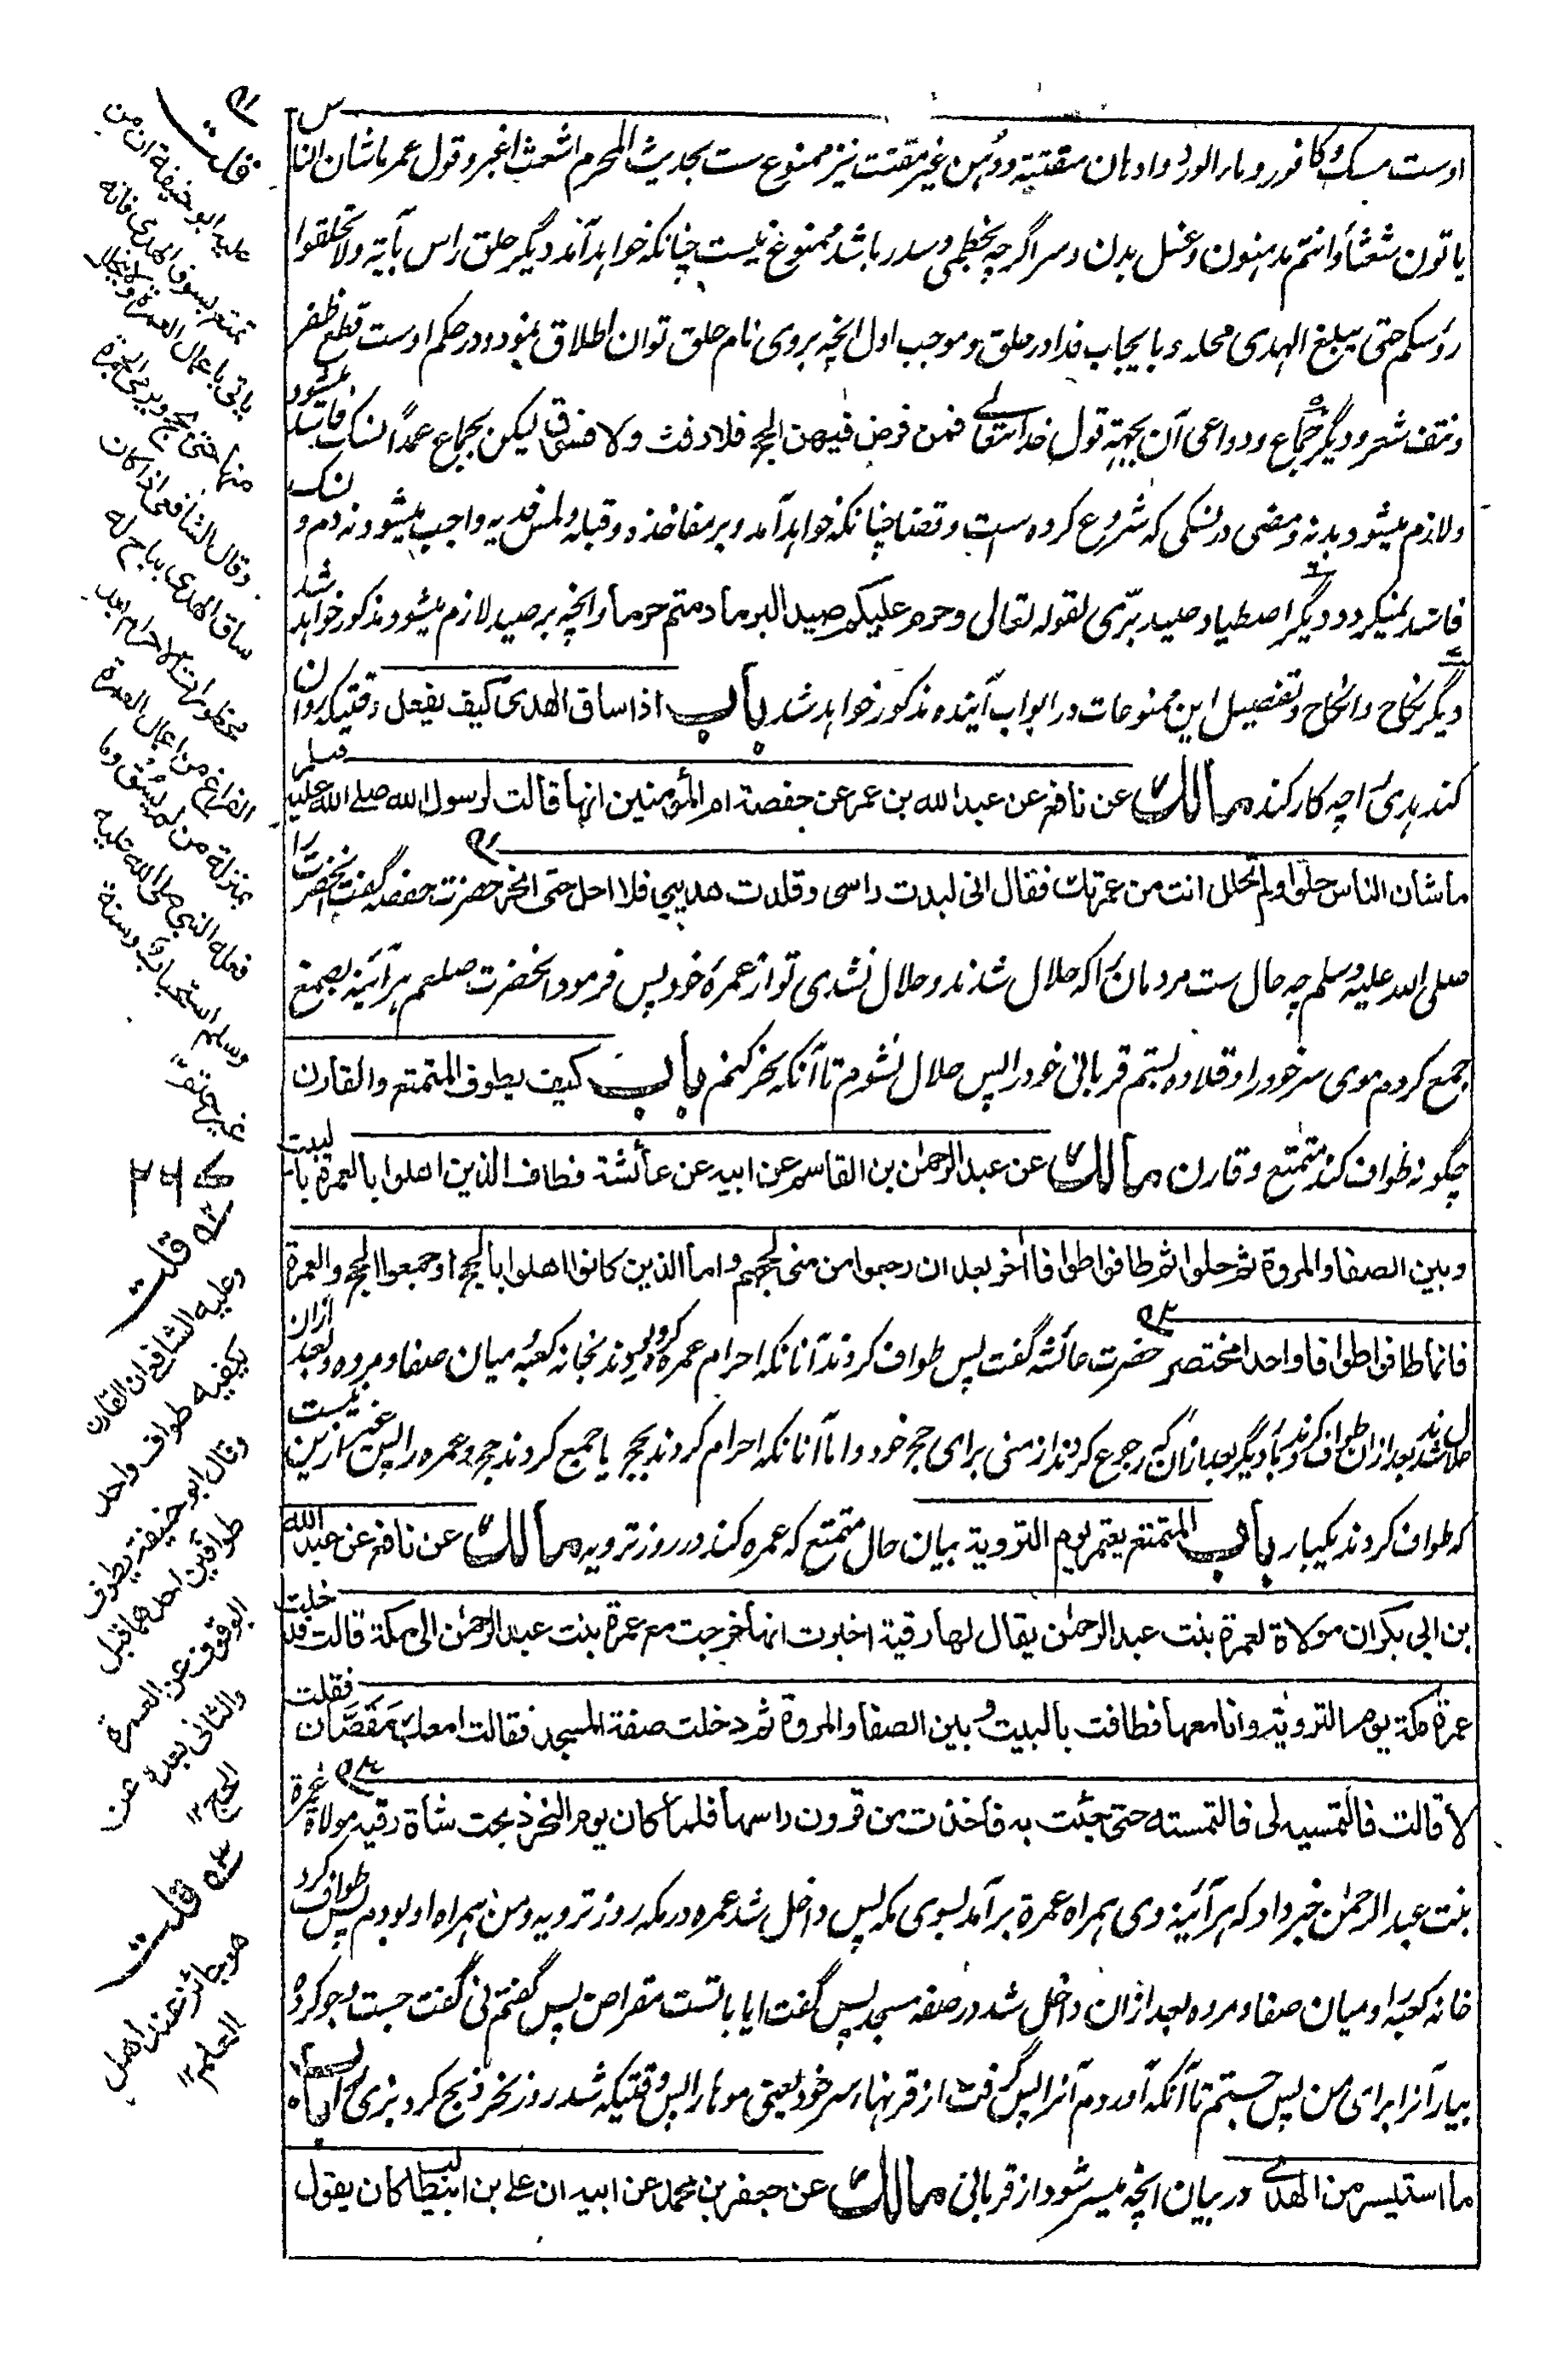 اوست مسک و کافور و ماء الورد و ادهان مقتته و دهن غیر مقتت نیز ممنوع ست بحدیث المحرم اشعث اغبر و قول عمر ماشان الناس
یاتون شعثاً وانتم مدهنون و غسل بدن و سر اگرچه بخطمی و سدر باشد ممنوع نیست چنانکه خواهد آمد دیگر حلق راس بآیة ولا تحلقوا
رؤسکم حتی یبلغ الهدی محله و بایجاب فدا در حلق و موجب اول انچه بروی نام حلق توان اطلاق نمود و در حکم اوست قطع ظفر
و نتف شعر و دیگر جماع و دواعی آن بجهة قول خدا تعالے فمن فرض فیهن الحج فلا رفث ولا فسوق لیکن بجماع عمداً نسک فاسد میشود
و لازم میشود بدنه و مضی در نسکی که شروع کرده ست و قضا چنانکه خواهد آمد و بر مفاخذه و قبله و لمس فدیه واجب میشود نه دم و نسک
فاسد نمیگردد دیگر اصطیاد صید برّی لقوله تعالی وحرم علیکم صید البر مادمتم حرما و انچه بر صید لازم میشود مذکور خواهد شد
دیگر نکاح و انکاح و تفصیل این ممنوعات در ابواب آینده مذکور خواهد شد باب اذا ساق الهدی کیف یفعل وقتیکه روان
کند هدی را چه کار کند مالک عن نافع عن عبد الله بن عمر عن حفصة ام المؤمنین انها قالت لرسول الله صلے الله علیه وسلم
ماشان الناس حلوا ولم تحلل انت من عمرتك فقال انی لبدت راسی وقلدت هدیی فلا احل حتی انحر حضرت حفصه گفت آنحضرت را
صلی الله علیه وسلم چه حال ست مردمان را که حلال شدند و حلال نشدی تو از عمرهٔ خود پس فرمود آنحضرت صلعم هر آئینه بصمغ
جمع کردم موی سر خود را و قلاده بستم قربانی خود را پس حلال نشوم تا آنکه نحر کنم باب کیف یطوف المتمتع والقارن
چگونه طواف کند متمتع و قارن مالک عن عبد الرحمٰن بن القاسم عن ابیه عن عائشة فطاف الذین اهلوا بالعمرة بالبیت
وبین الصفا والمروة ثم حلوا ثم طافوا طوافا اٰخر بعد ان رجعوا من منی لحجهم واما الذین کانوا اهلوا بالحج او جمعوا الحج والعمرة
فانما طافوا طوافا واحدا مختصر حضرت عائشه گفت پس طواف کردند آنانکه احرام عمره کرده بودند بخانه کعبه و میان صفا و مروه و بعد ازان
حلال شدند بعد ازان طواف کردند بار دیگر بعد ازان که رجوع کردند از منی برای حج خود و اما آنانکه احرام کردند بحج یا جمع کردند حج و عمره را پس غیر ازین نیست
که طواف کردند یکبار باب المتمتع یعتمر یوم الترویة بیان حال متمتع که عمره کند در روز ترویه مالک عن نافع عن عبد الله
بن ابی بکر ان مولاة لعمرة بنت عبد الرحمٰن یقال لها رقیة اخبرت انها خرجت مع عمرة بنت عبد الرحمٰن الی مکة قالت فدخلت
عمرة مکة یوم الترویة وانا معها فطافت بالبیت وبین الصفا والمروة ثم دخلت صفة المسجد فقالت امعك مقصّان فقلت
لا قالت فالتمسیه لی فالتمسته حتی جئت به فاخذت من قرون راسها فلما کان یوم النحر ذبحت شاة رقیه مولاة عمرة
بنت عبد الرحمٰن خبر داد که هر آئینه وی همراه عمرة برآمد بسوی مکه پس داخل شد عمره در مکه روز ترویه و من همراه او بودم پس طواف کرد
خانه کعبه را و میان صفا و مروه بعد ازان داخل شد در صفه مسجد پس گفت ایا با تست مقراض پس گفتم نی گفت جست و جو کرده
بیار آنرا برای من پس جستم تا آنکه آوردم آنرا پس گرفت از قرنهاء سر خود یعنی موها را پس وقتیکه شد روز نحر ذبح کرد بزی را باب
ما استیسر من الهدی در بیان انچه میسر شود از قربانی مالک عن جعفر بن محمد عن ابیه ان علے بن ابیطالب کان یقول
قلت
علیه ابو حنیفة ان من
تمتع بسوق الهدی فانه
یاتی باعمال العمرة ولا یتحلل
منها حتی یحج ویرمی الجمرة
وقال الشافعی اذا کان
ساق الهدی یباح له
محظورات الاحرام بعد
الفراغ من اعمال العمرة
بمنزلة من لم یسق وما
فعله النبی صلی الله علیه
وسلم استحباب وسنة
غیر حتم ۱۲
قلت
وعلیه الشافعی ان القارن
یکفیه طواف واحد
وقال ابو حنیفة یطوف
طوافین احدهما قبل
الوقوف عن العمرة
والثانی بعده عن
الحج ۱۲
قلت
هو جائز عند اهل
العلم ۱۲